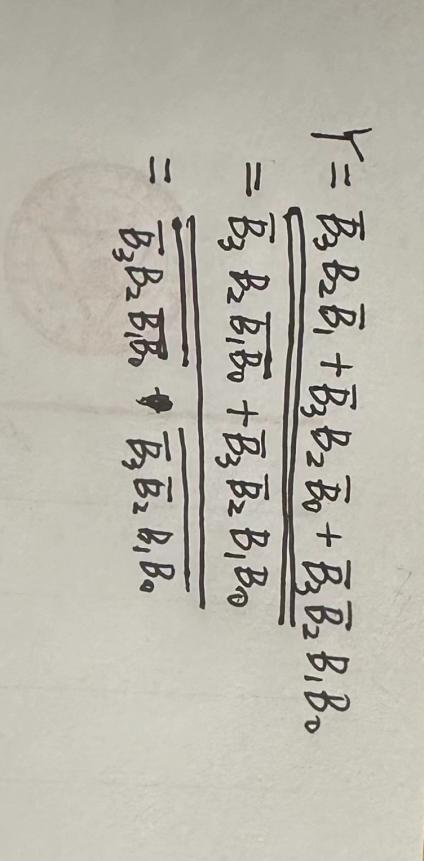 Y = B̅₃B₂B̅₁ + B̅₃B₂B̅₀ + B̅₃B̅₂B₁B₀
= \overline{\overline{B̅₃B₂\overline{B₁B₀} + B̅₃B̅₂B₁B₀}}
= \overline{\overline{B̅₃B₂\overline{B₁B₀}} · \overline{B̅₃B̅₂B₁B₀}}